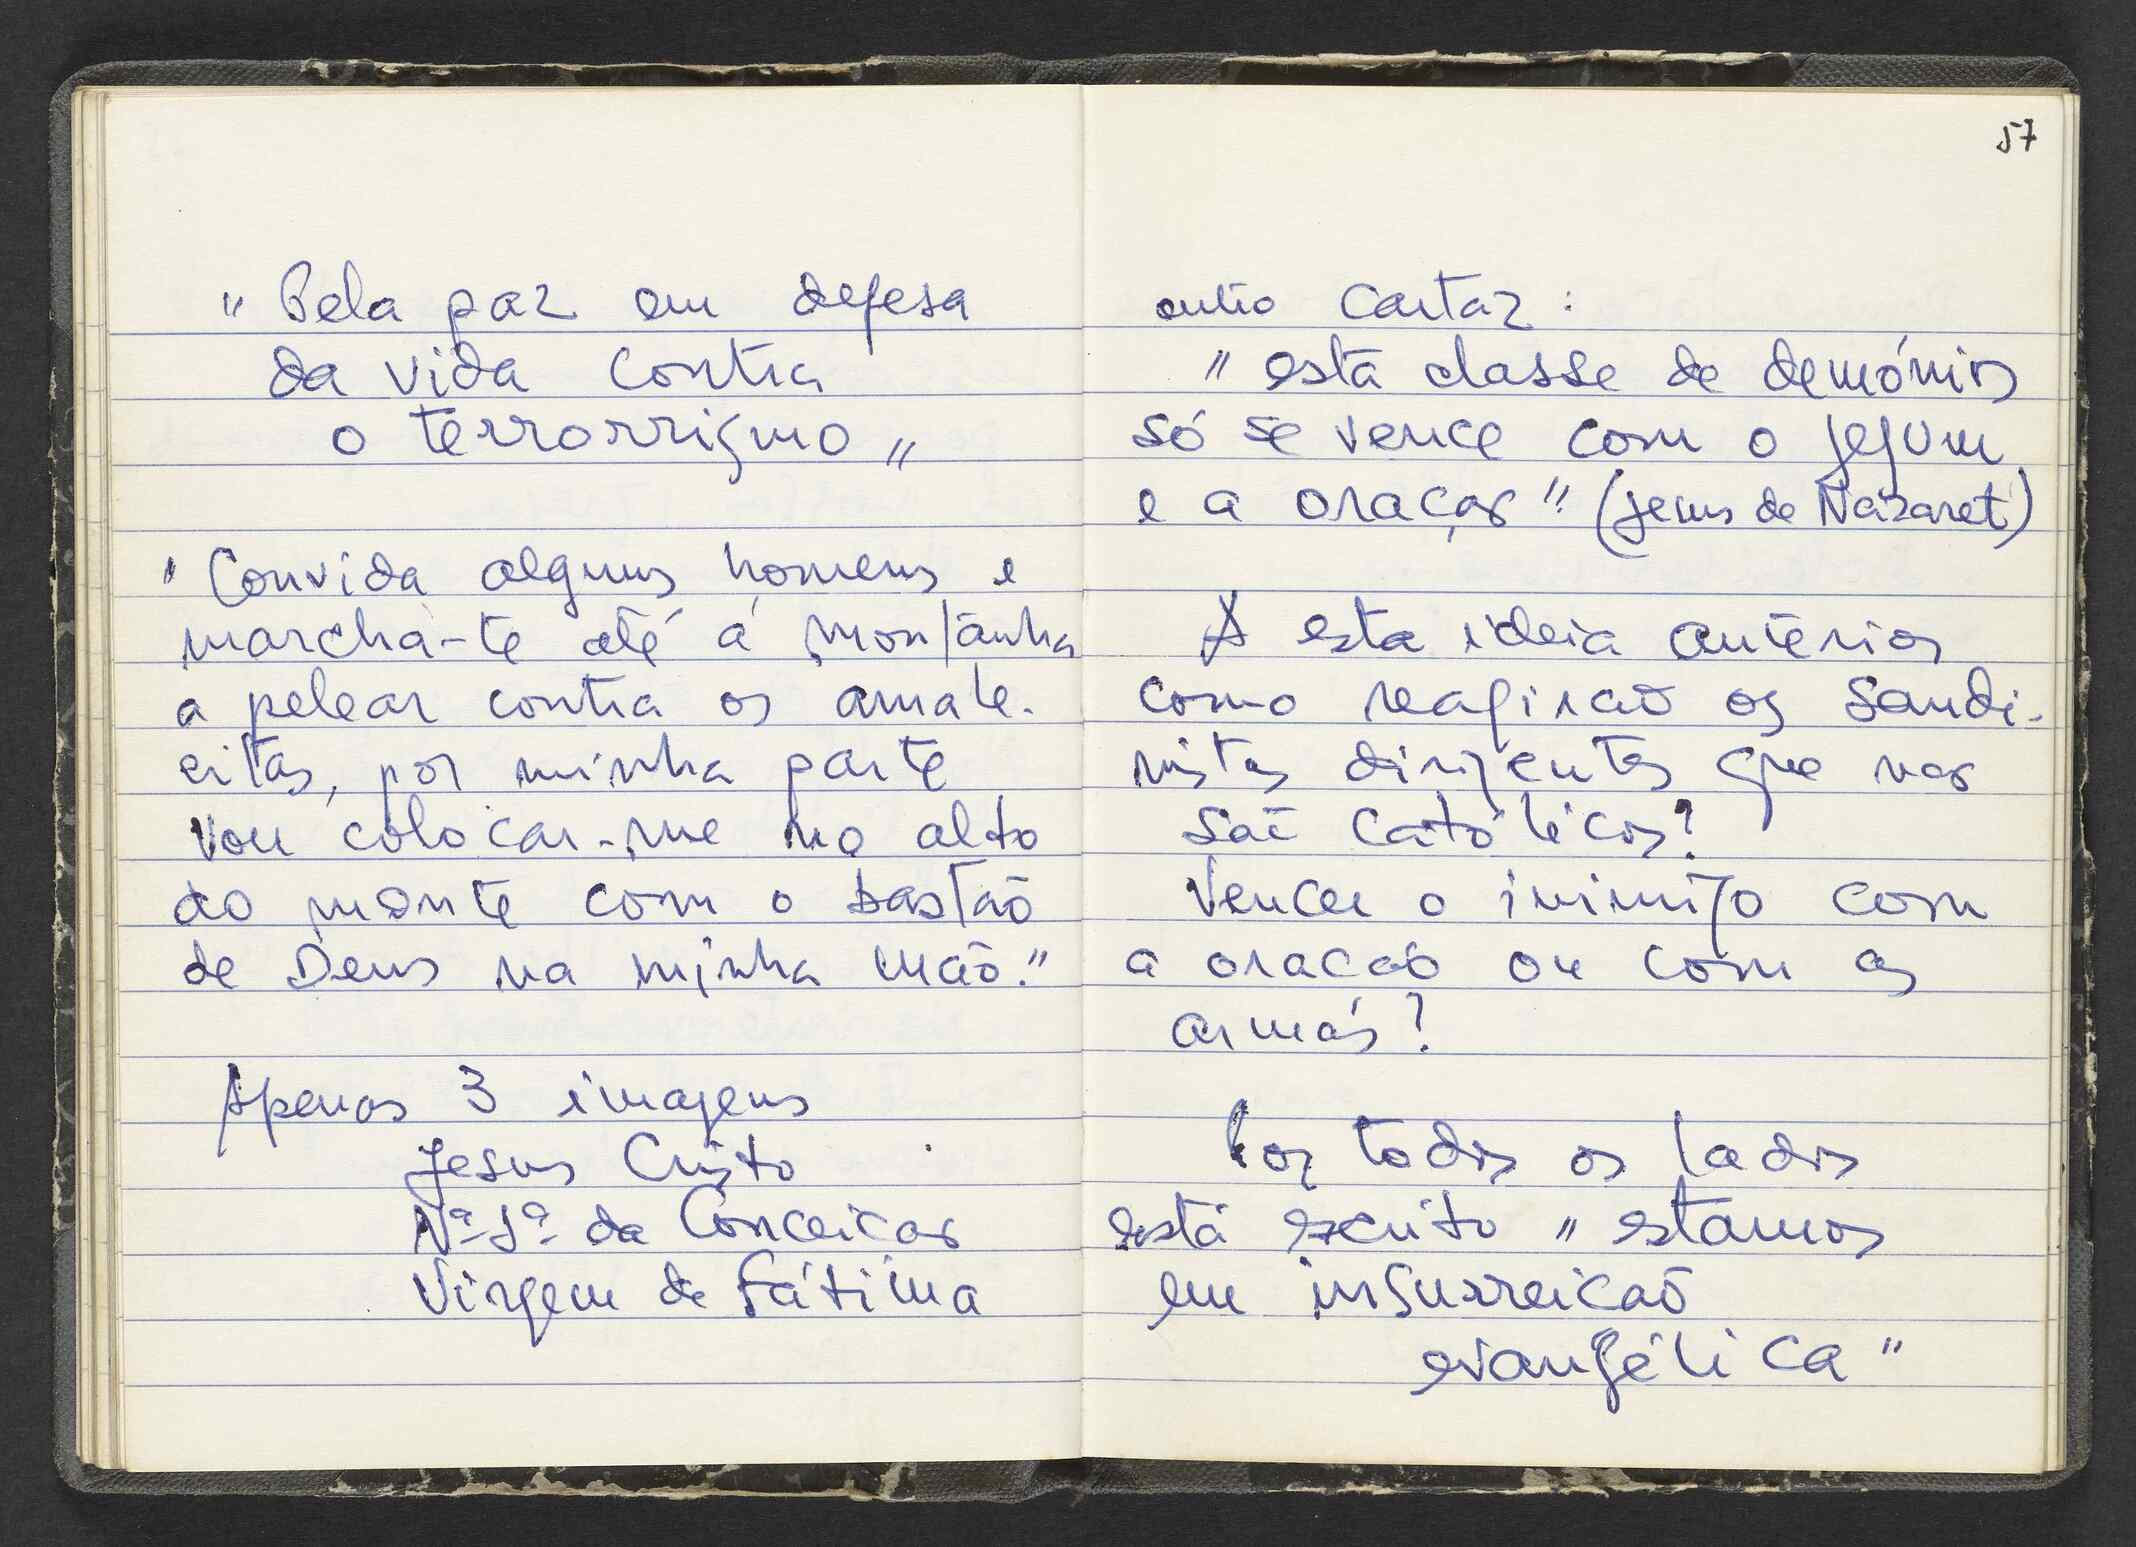 "Pela paz em defesa
da vida contra
o terrorrismo"
"Convida alguns homens e
marcha-te até á montanha
a pelear contra os amale-
citas, por minha parte
vou colocar-me no alto
do monte com o bastão
de Deus na minha mão."
Apenas 3 imagens
Jesus Cristo
Nª Sª da Conceicão
Virgem de Fátima
57
outro cartaz:
"está classe de demónios
só se vence com o jejum
e a oração" (Jesus de Nazaret)
A esta ideia anterior
como reagiraõ os Sandi-
nistas dirigentes que não
saõ católicos?
Vencer o inimigo com
a oracaõ ou com as
armas?
Por todos os lados
está escrito "estamos
em insurreicaõ
evangélica"